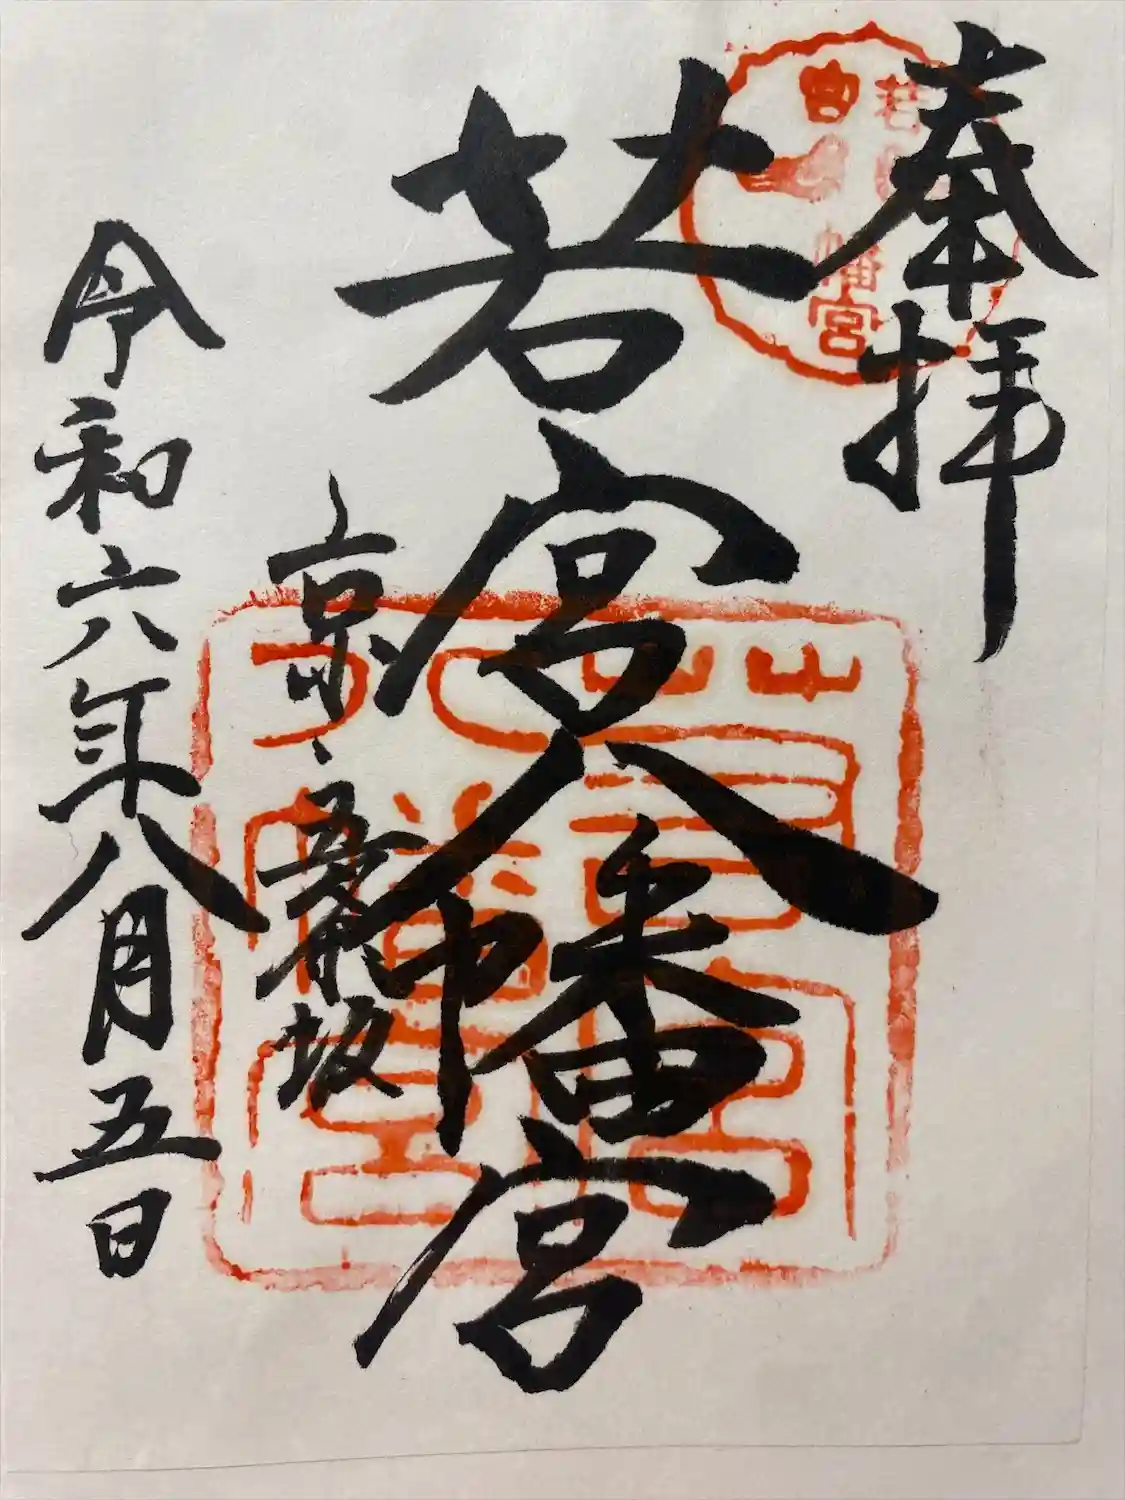 奉拝
若宮八幡宮
京、五条坂
令和六年八月五日
若宮八幡宮